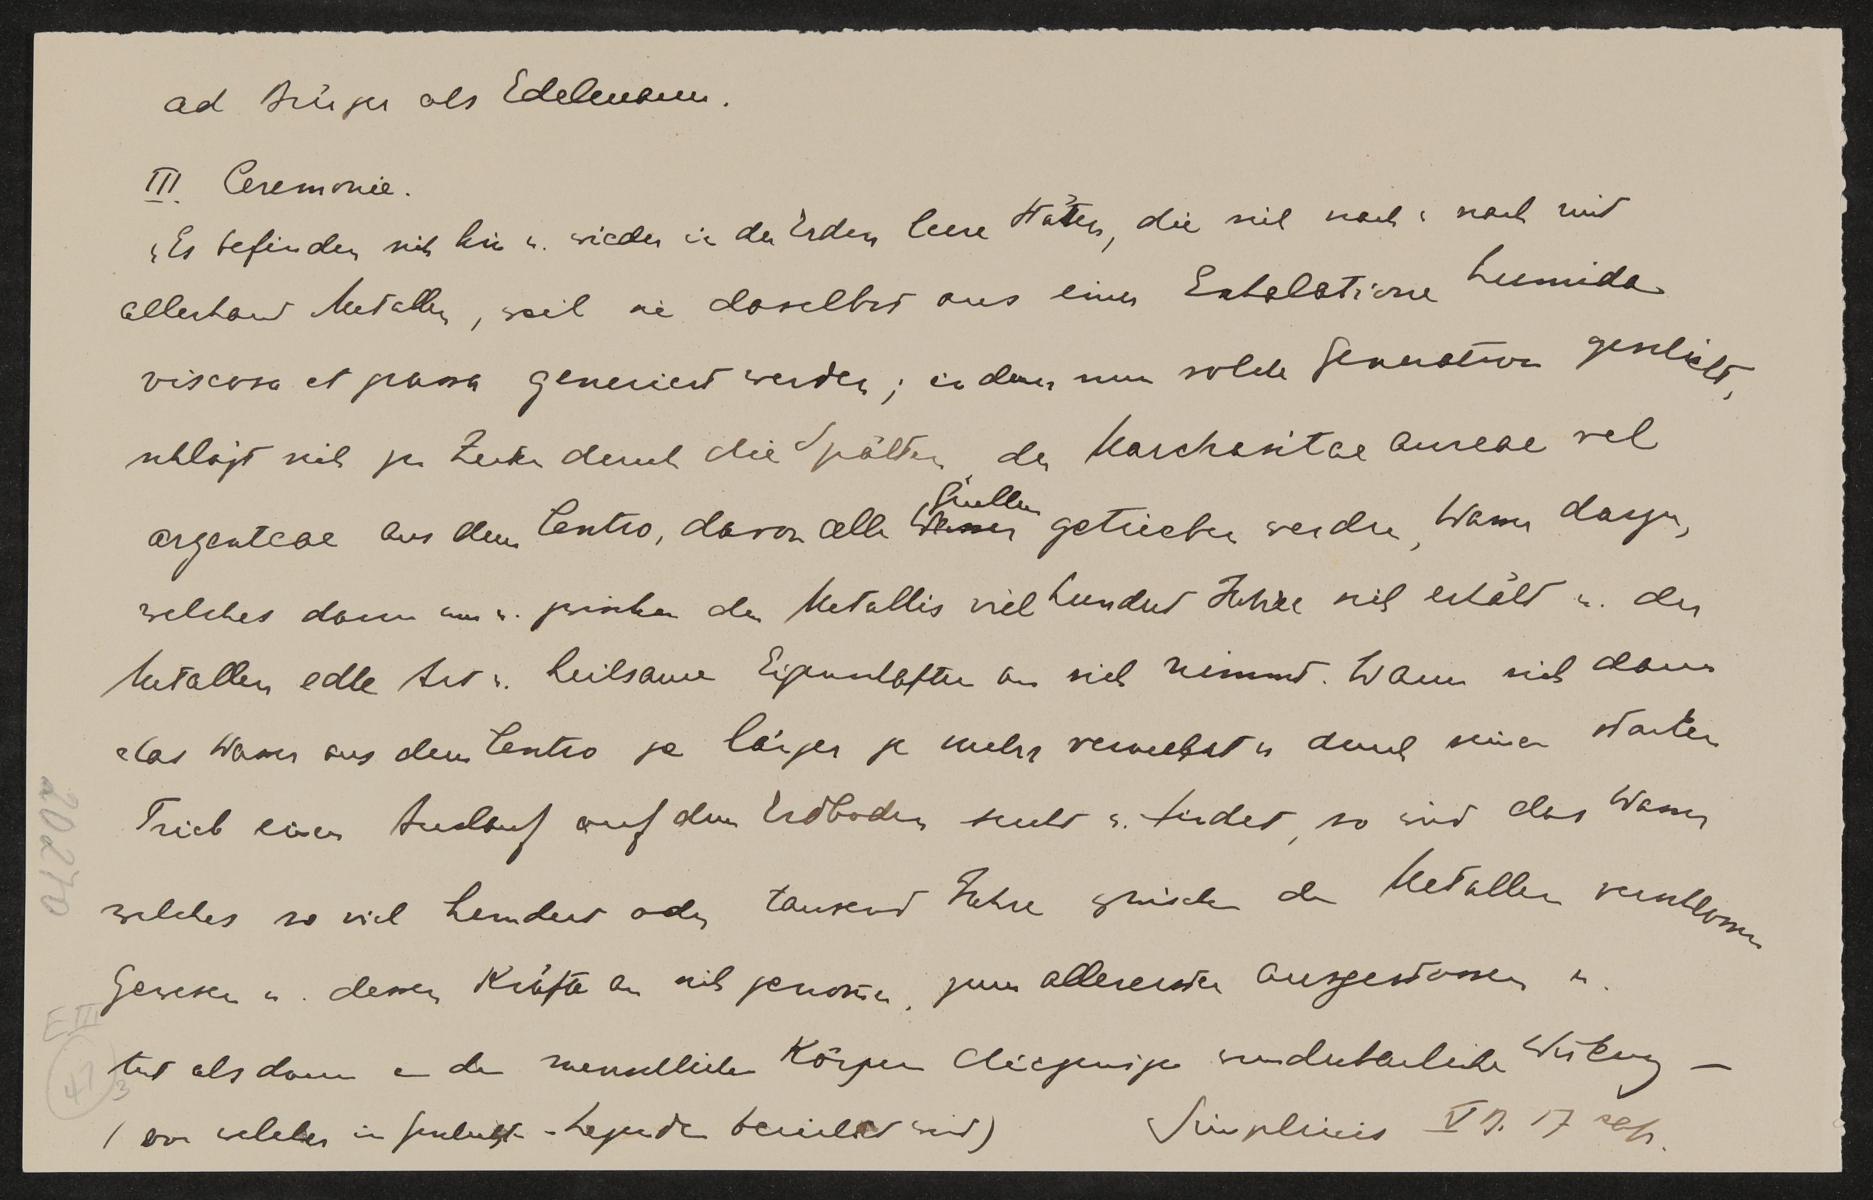 ad Bürger als Edelmann.
III. Ceremonie.
„Es befinden sich hin u. wieder in der Erden leere Stätten, die sich nach u nach mit
allerhand Metallen, weil sie daselbst aus einer Exhalatione humida
viscosa et grassa generiert werden; in dem nun solche Generation geschieht,
schlägt sich je Zeiten durch die Spälten der Marchasitae aureae vel
argenteae aus dem Centro, davon alle Wasser Quellen getrieben werden, Wasser dazu,
welches dann um u. zwischen den Metallis viel hundert Jahre sich erhält u. der
Metallen edle Art u. heilsame Eigenschaften an sich nimmt. Wann sich dann
das Wasser aus dem Centro je länger je mehr vermehrt u durch seinen starken
Trieb einen Auslauf auf dem Erdboden sucht u. findet, so wird das Wasser
welches so viel hundert oder tausend Jahre zwischen den Metallen verschlossen
Gewesen u. dessen Kräfte an sich genommen, zum allerersten ausgestossen u.
tut alsdann an den menschlichen Körpern diejenige wunderbarliche Wirkung –
(von welcher in Legenden berichtet wird) Simplicius V B. 17
202170
E III
47
3